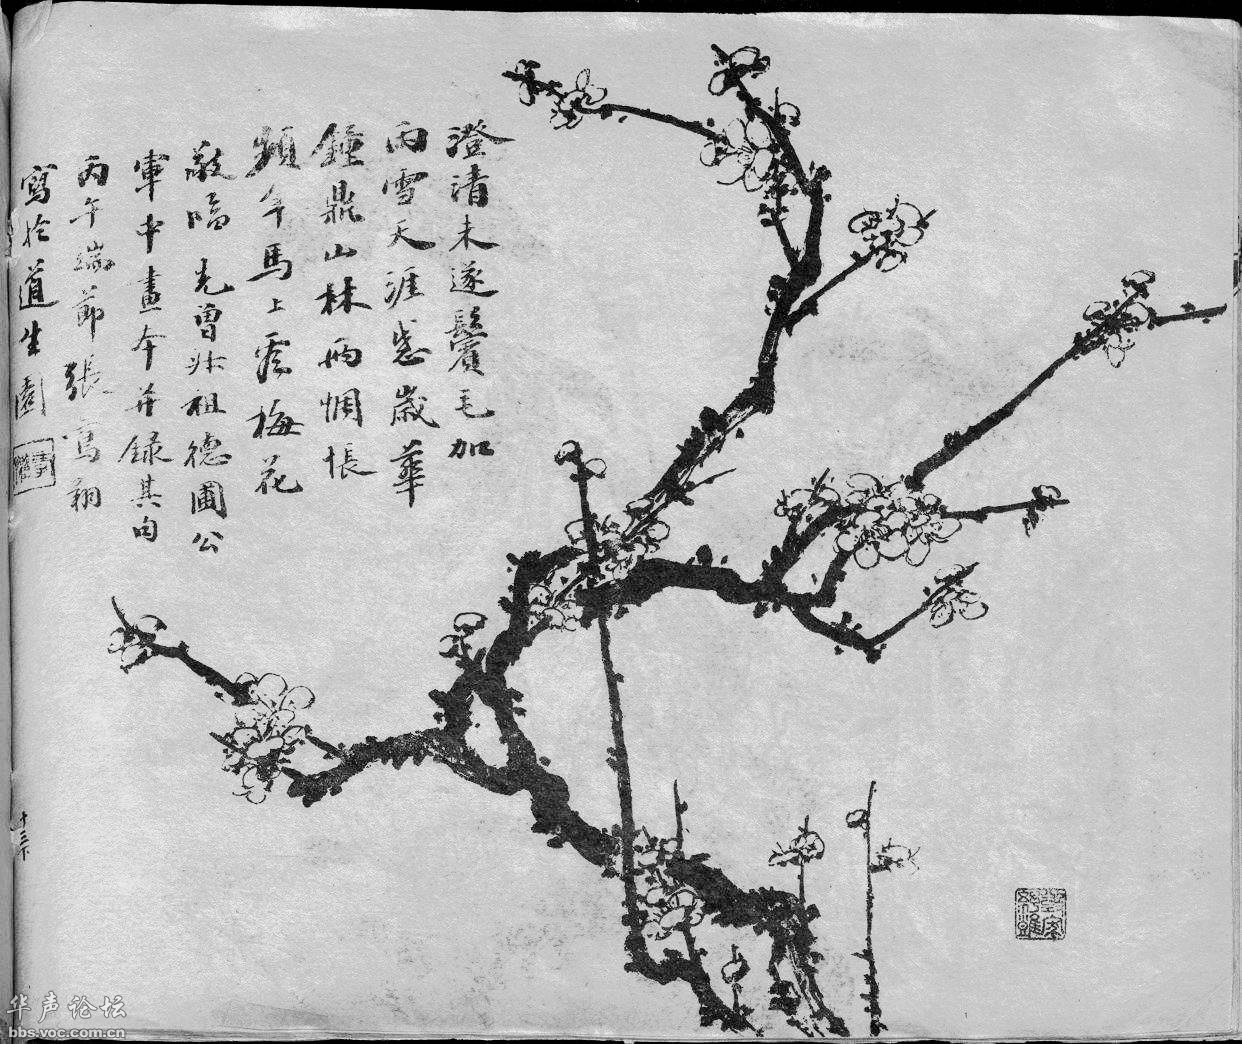 澄清未遂鬢毛加
雨雪天涯感歲華
鐘鼎山林兩惆悵
頻年馬上看梅花
敬臨 先曾叔祖德圃公
軍中畫本并錄其句
丙午端節張
翔
寫於道生園
十三下
华声论坛
bbs.voc.com.cn